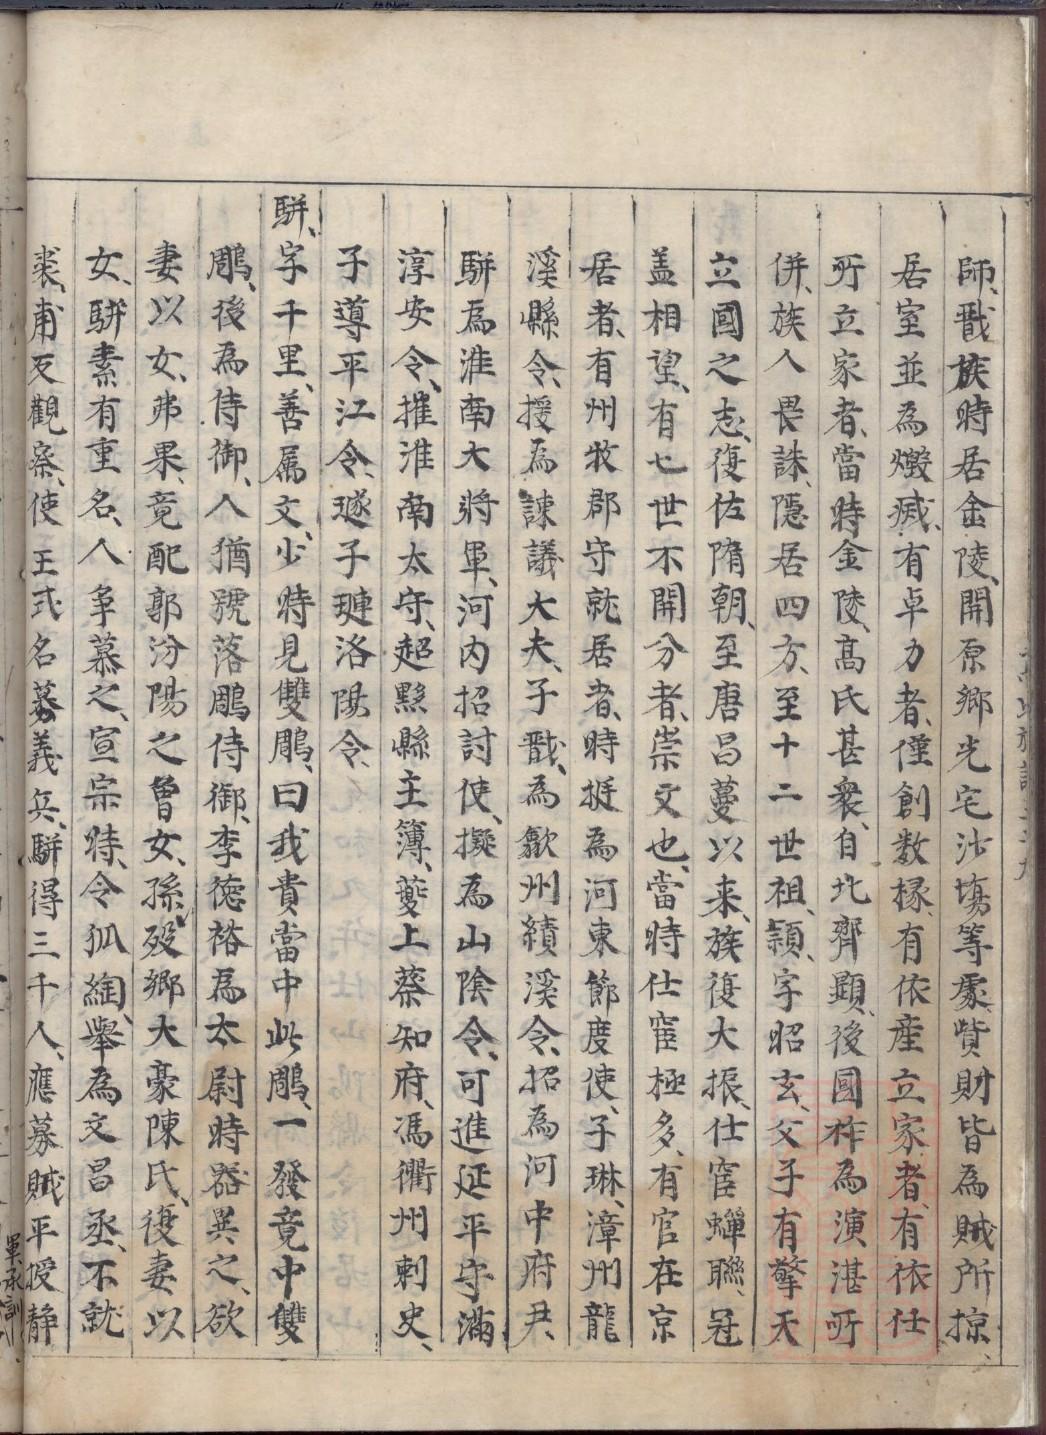 師、戬族時居金陵、開原鄉光宅沙塲等處、貲財皆為賊所掠、
居室並為燬烕、有卓力者、僅創数椽、有依産立家者、有依任
所立家者、當時金陵、高氏甚衆、自北齊顕、後國祚為演湛所
併、族人畏誅、隱居四方、至十二世祖、頴、字昭玄、父子有擎天
立國之志、復佐隋朝、至唐昌蔓以来、族復大振、仕宦蟬聮、冠
盖相望、有七世不開分者、崇文也、當時仕宦極多、有官在京
居者、有州牧郡守就居者、時挺為河東節度使、子琳、漳州龍
溪縣令、援為諫議大夫、子戬、為歙州績溪令、招為河中府尹、
駢為淮南大将軍、河内招討使、擬為山陰令、可進延平守、滿
淳安令、摧淮南太守、超黙縣主簿、蘷上蔡知府、馮衢州刺史、
子導平江令、璲子璉洛陽令、
駢、字千里、善属文、少時見雙鵰、曰我貴當中此鵰、一發竟中雙
鵰、後為侍御、人猶號落鵰侍御、李德裕為太尉時器異之、欲
妻以女、弗果、竟配郭汾陽之曾女、孫、殁鄉大豪陳氏、復妻以
女、駢素有重名、人争慕之、宣宗時、令狐綯、舉為文昌丞、不就
裘、甫反觀察、使王式名募義兵、駢得三千人、應募賊平授静